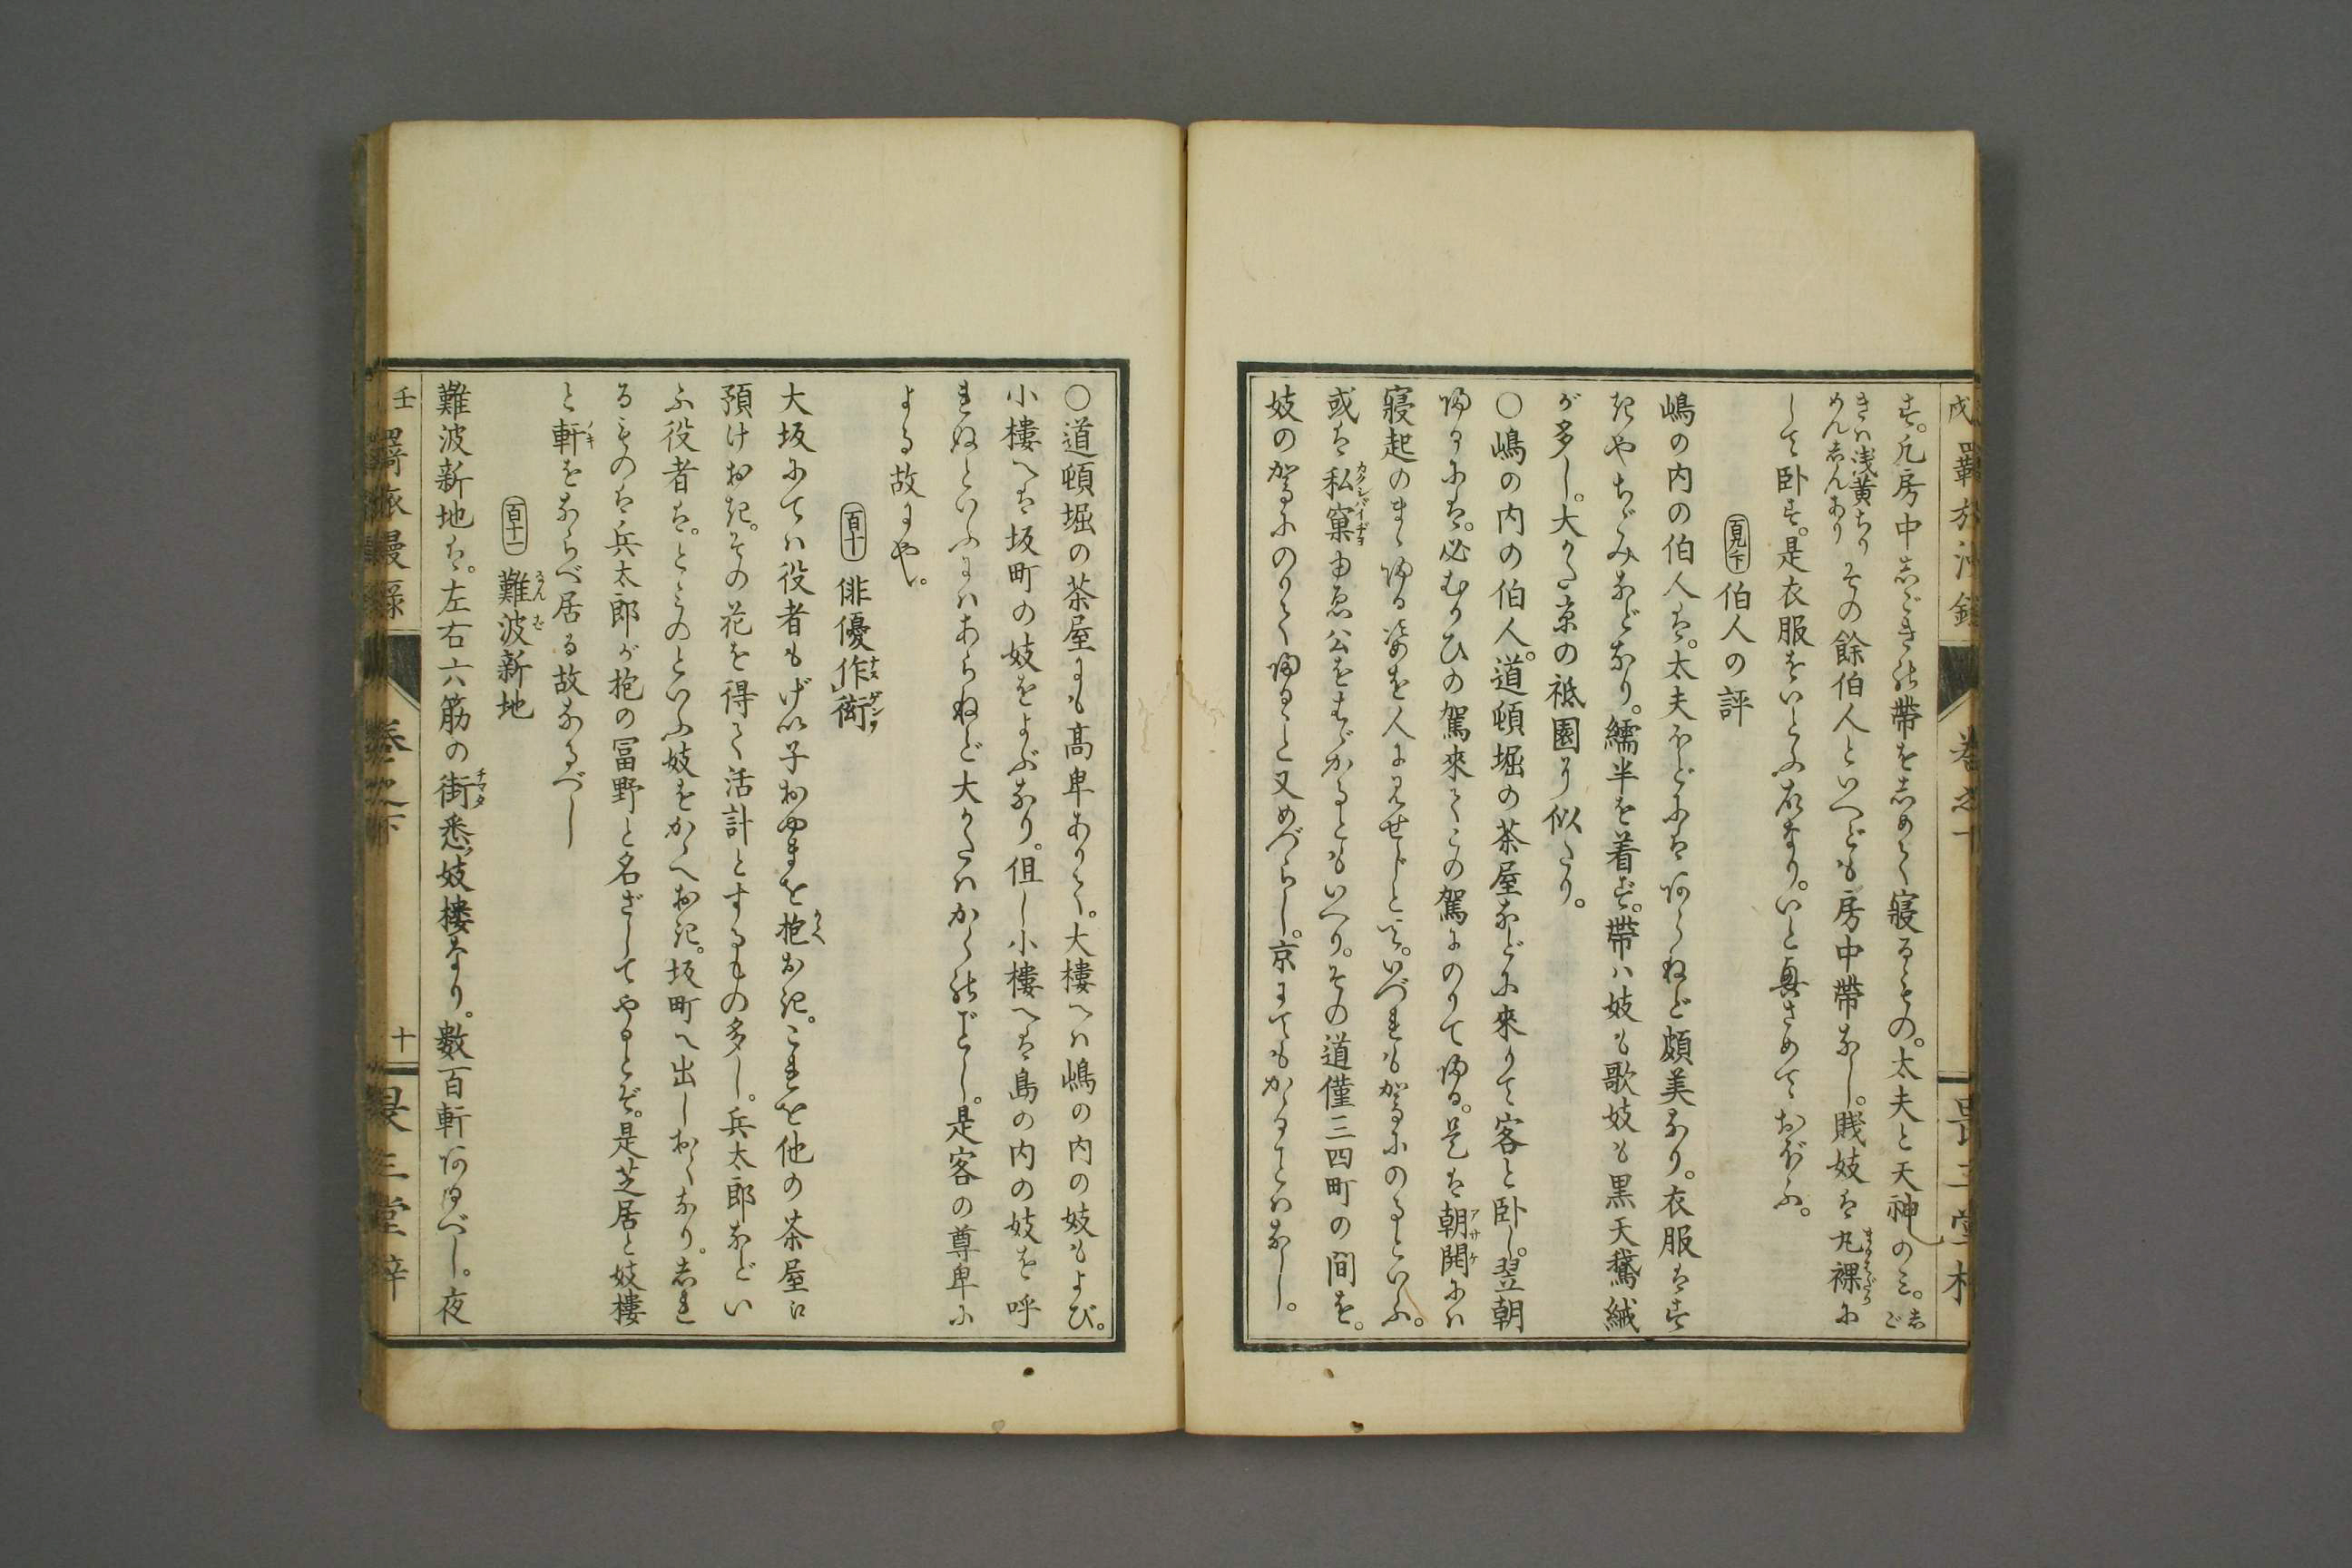 す。凡房中しごきの帯をしめて寝るもの。太夫と天神のミ。しご
きハ浅黄ちりめんしんあり その餘伯人といへども房中帯なし。賤妓は丸裸に
して臥す。是衣服をいとふ故なり。いと興さめておぼふ。
百九 伯人の評
嶋の内の伯人は。太夫ほどにはあらねど頗美なり。衣服はす
きやちゞみなどなり。繻半を着ず。帯ハ妓も歌妓も黒天鵞絨
が多し。大かた京の祇園に似たり。
○嶋の内の伯人。道頓堀の茶屋などに來りて客と臥し。翌朝
帰るには。必むかひの駕來てこの駕にのりて帰る。是は朝開にハ
寝起のまゝ帰る姿を人に見せじと也。いづれも駕にのるといふ。
或は私窠由忍公をはゞかるともいへり。その道僅三四町の間を。
妓の駕にのりて帰ること又めづらし。京にてもかゝることハなし。
○道頓堀の茶屋にも髙卑ありて。大樓へハ嶋の内の妓もよび。
小樓へは坂町の妓をよぶなり。但し小樓へは島の内の妓を呼
れぬといふにハあらねど大かたハかくのごとし。是客の尊卑に
よる故にや。
百十 俳優作衒
大坂にてハ役者もげい子おやまを抱おき。これを他の茶屋に
預けおき。その花を得て活計とするもの多し。兵太郎などい
ふ役者は。とミのといふ妓をかゝへおき。坂町へ出しおくなり。しれ
るものは兵太郎が抱の冨野と名ざしてやるとぞ。是芝居と妓樓
と軒をならべ居る故なるべし
百十一 難波新地
難波新地は。左右六筋の街悉妓楼なり。數百軒あるべし。夜
壬 羇旅漫録 巻之下 十